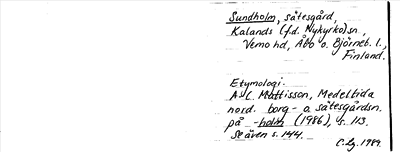 Sundholm, sätesgård,
Kalands (f.d. Nykyrko) sn.,
Vemo hd, Åbo o. Björneb. l.,
Finland.
Etymologi.
A. C. Mattisson, Medeltida
nord. borg- o. sätesgårdsn.
på -holm (1986), s. 113.
Se även s. 144.
C. Lg. 1989.